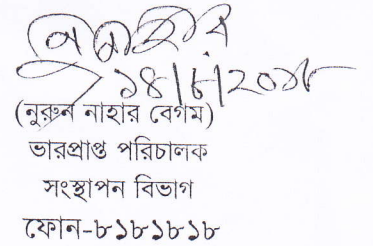 ১৪/৮/২০১৮
(নুরুন নাহার বেগম)
ভারপ্রাপ্ত পরিচালক
সংস্থাপন বিভাগ
ফোন-৮১৮১৮১৮